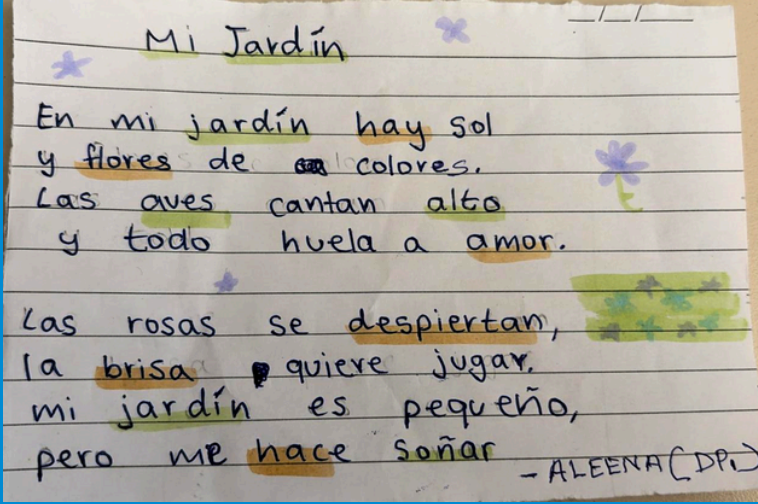 __/__/____
Mi Jardín
En mi jardín hay sol
y flores de colores.
Las aves cantan alto
y todo huela a amor.
Las rosas se despiertan,
la brisa quiere jugar.
mi jardín es pequeño,
pero me hace soñar
- ALEENA (DP1)